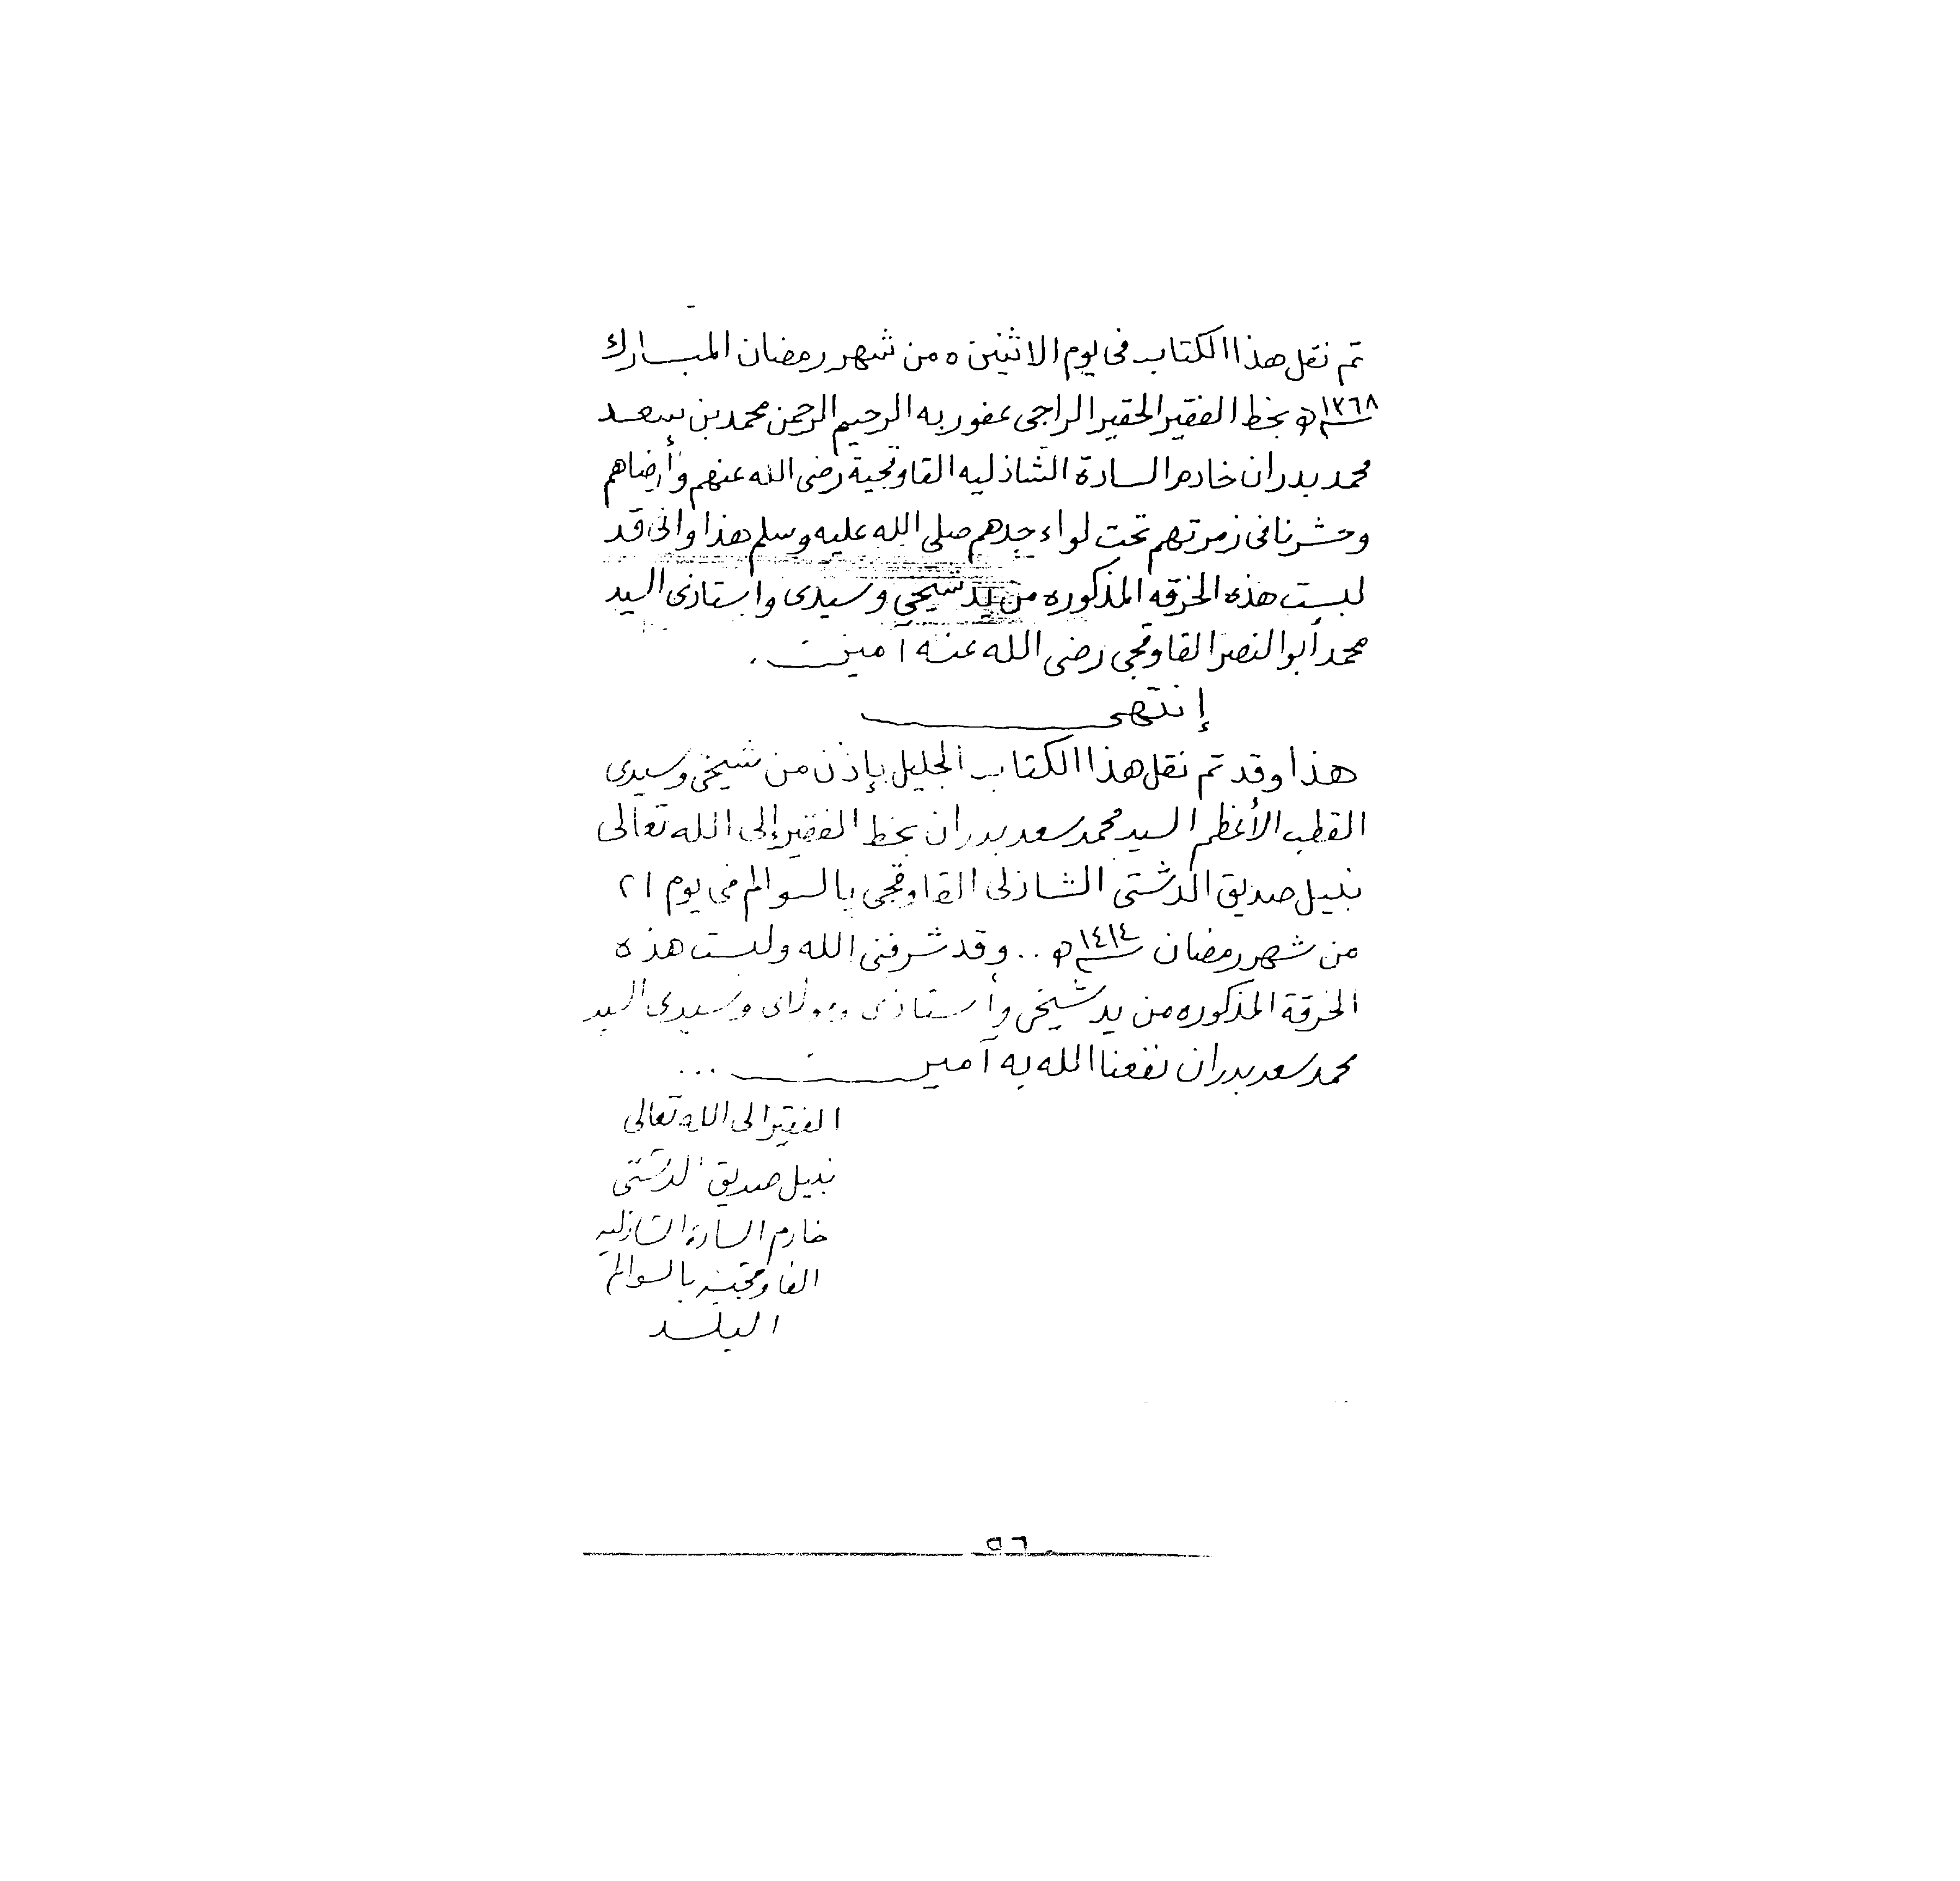 تم نقل هذا الكتاب فى يوم الاثنين ٥ من شهر رمضان المبارك
١٣٦٨ ه بخط الفقير الحقير الراجى عفو ربه الرحيم الرحمن محمد بن سعد
محمد بدران خادم السادة الشاذليه القاوقجية رضى الله عنهم وأرضاهم
وحشرنا فى زمرتهم تحت لواء جدهم صلى الله عليه وسلم هذا وانى قد
لبست هذه الخرقه المذكوره من يد شيخي وسيدى واستاذى السيد
محمد أبو النصر القاوقجى رضى الله عنه آمين .
إنتهى
هذا وقد تم نقل هذا الكتاب الجليل بإذن من شيخى وسيدى
القطب الأعظم السيد محمد سعد بدران بخط الفقير إلى الله تعالى
نبيل صديق الدشتى الشاذلى القاوقجى بالسوالم فى يوم ٢١
من شهر رمضان ١٤١٤ ه .. وقد شرفنى الله ولبست هذه
الخرقة المذكوره من يد شيخى وأستاذى ومولاى وسيدى السيد
محمد سعد بدران نفعنا الله به آمين ...
الفقير الى الله تعالى
نبيل صديق الدشتى
خادم السادة الشاذليه
القاوقجيه بالسوالم
البلد
٥٦